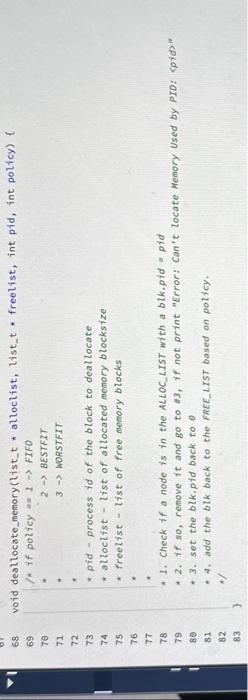 67
68 void deallocate_memory(list_t * alloclist, list_t * freelist, int pid, int policy) {
69 /* if policy == 1 -> FIFO
70 * 2 -> BESTFIT
71 * 3 -> WORSTFIT
72 *
73 * pid - process id of the block to deallocate
74 * alloclist - list of allocated memory blocksize
75 * freelist - list of free memory blocks
76 *
77 *
78 * 1. Check if a node is in the ALLOC_LIST with a blk.pid = pid
79 * 2. if so, remove it and go to #3, if not print "Error: Can't locate Memory Used by PID: <pid>"
80 * 3. set the blk.pid back to 0
81 * 4. add the blk back to the FREE_LIST based on policy.
82 */
83 }